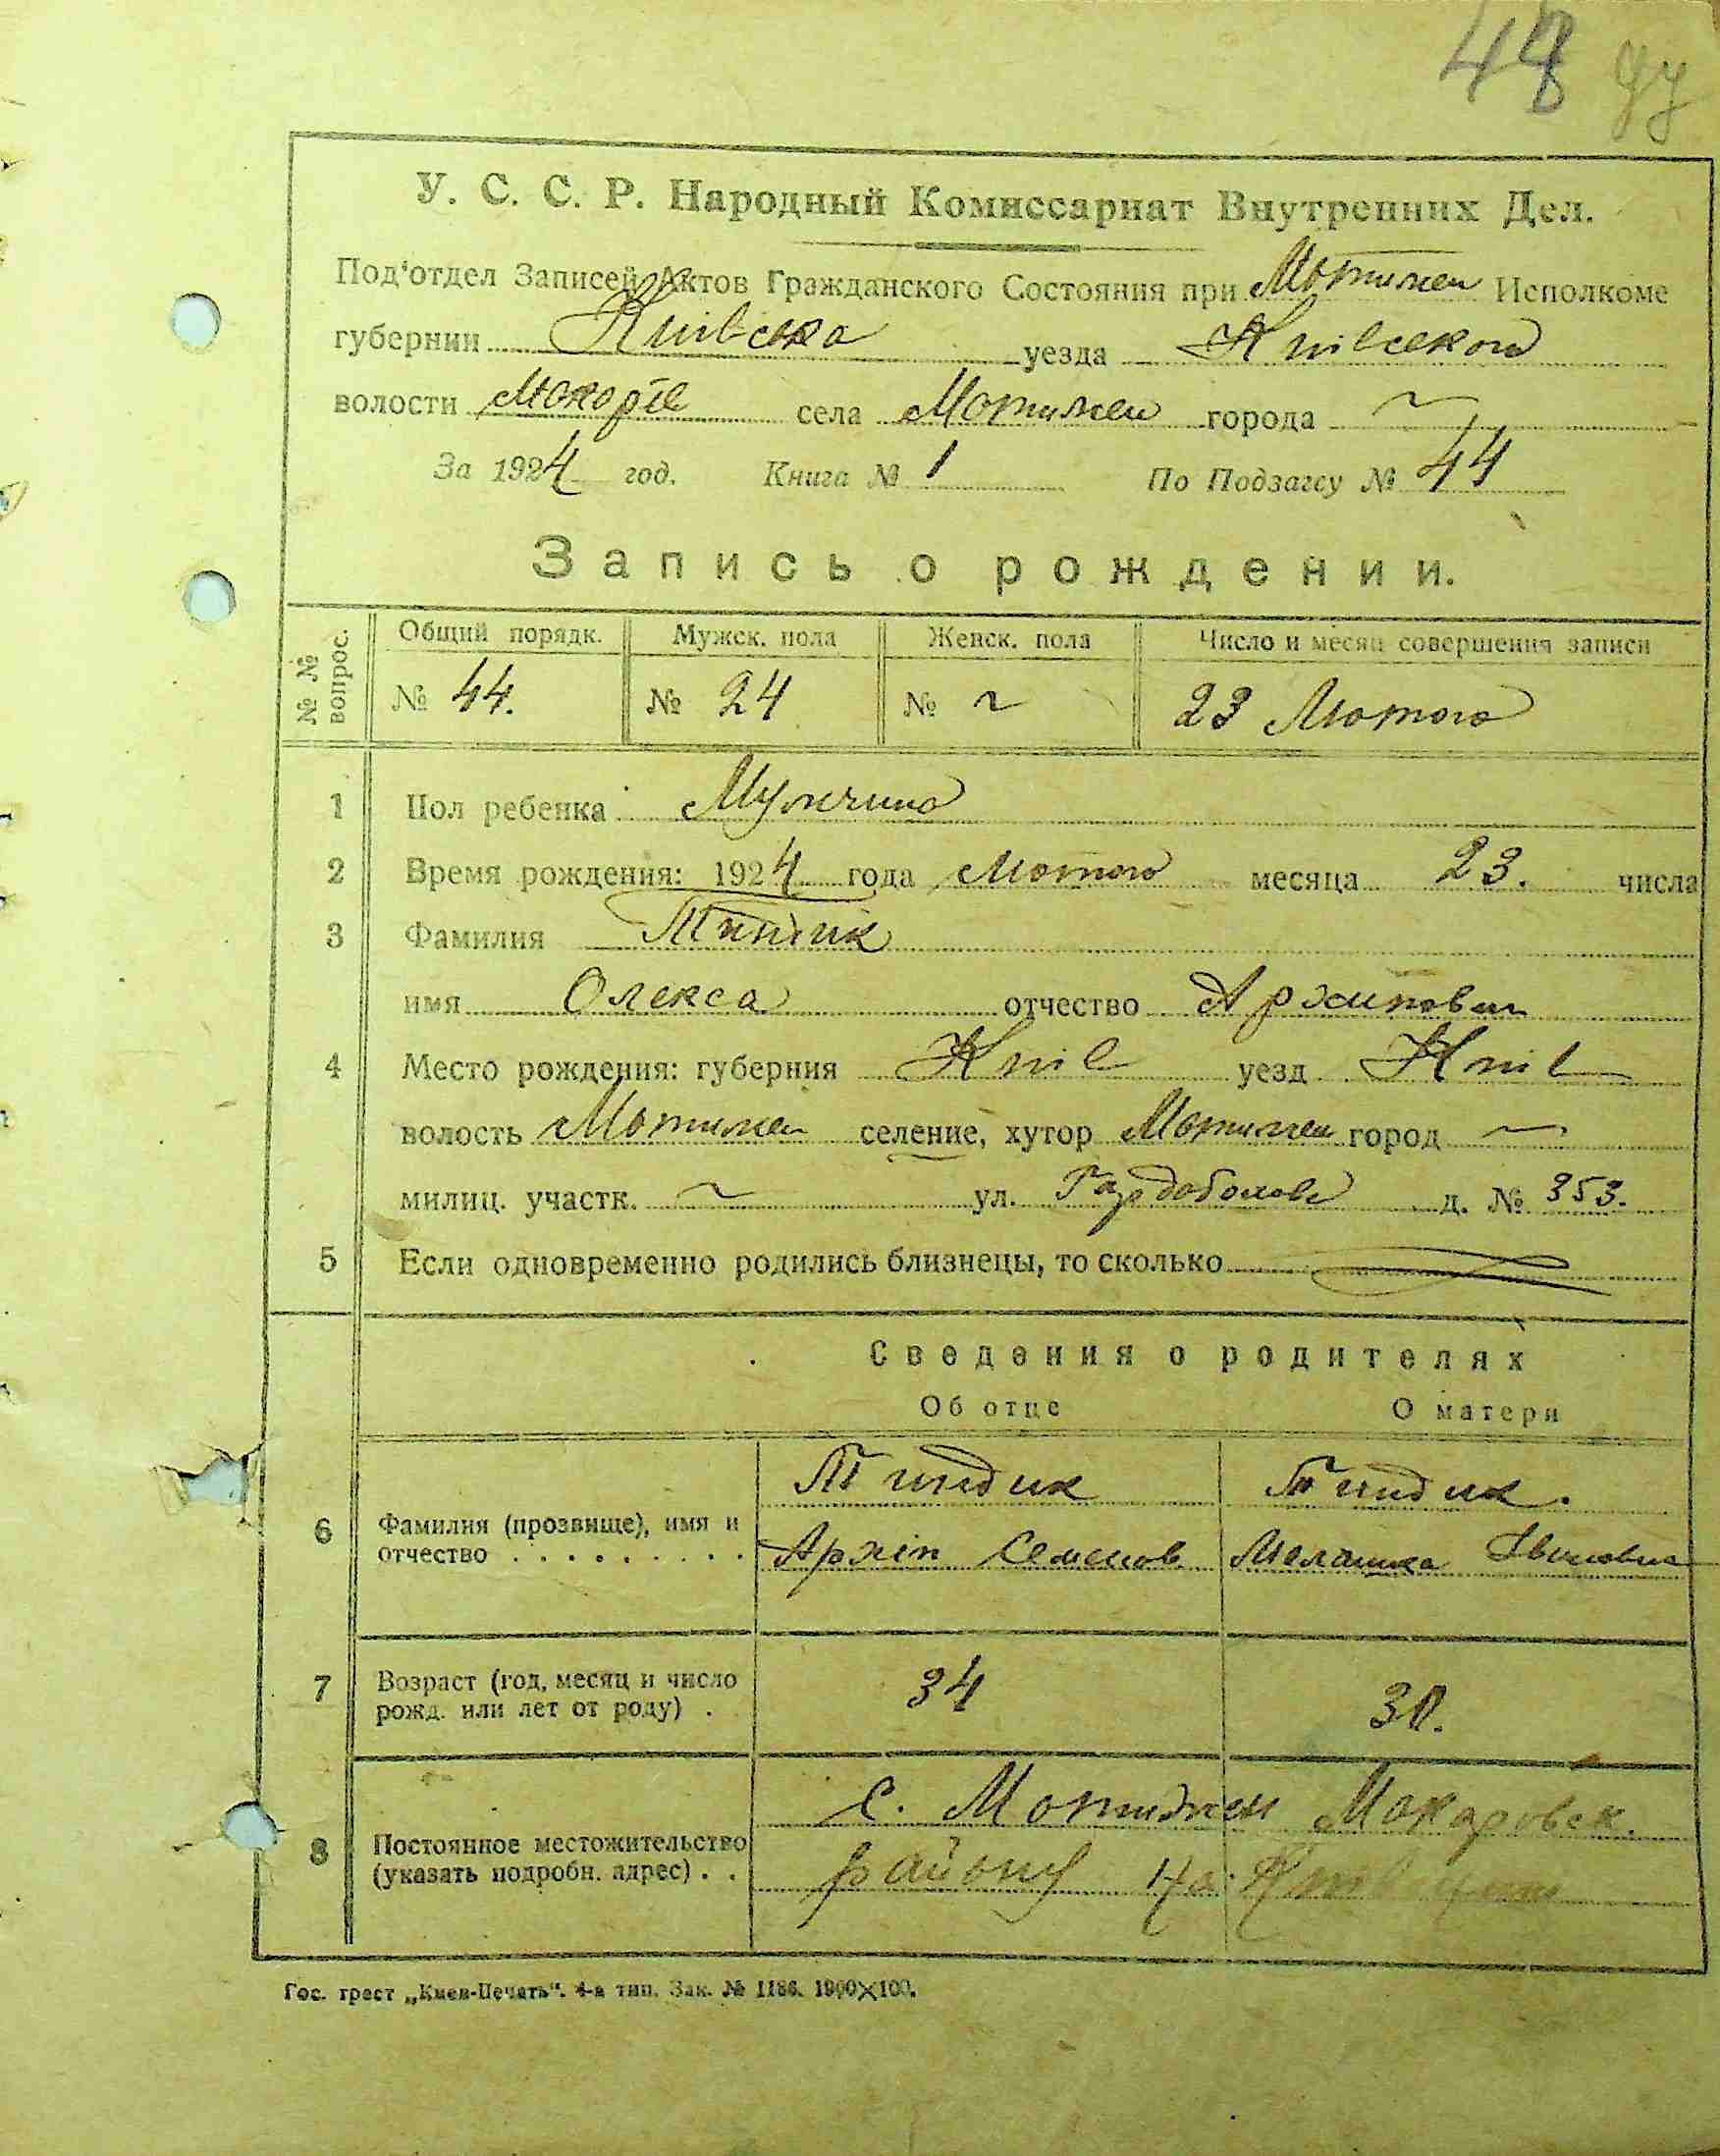 48 44
У. С. С. Р. Народный Комиссариат Внутренних Дел.
Под'отдел Записей Актов Гражданского Состояния при Мотижен Исполкоме
губернии Київська уезда Київского
волости Макарів села Мотижен города ~
За 1924 год. Книга № 1 По Подзагсу № 44
Запись о рождении.
№ № вопрос. Общий порядк. Мужск. пола Женск. пола Число и месяц совершения записи
№ 44. № 24 № ~ 23 Лютого
1 Пол ребенка Мужчина
2 Время рождения: 1924 года Лютого месяца 23. числа
3 Фамилия
имя Олекса отчество Архипович
4 Место рождения: губерния Київ уезд Київ
волость Мотижен селение, хутор Мотижен город —
милиц. участк. ~ ул. д. № 353.
5 Если одновременно родились близнецы, то сколько
Сведения о родителях
Об отце О матери
Пиндик Пиндик.
6 Фамилия (прозвище), имя и
отчество . . . . . . . . . Архіп Семенов Мелашка Івановна
7 Возраст (год, месяц и число
рожд. или лет от роду) . 34 30.
С. Мотижен Макаровск.
8 Постоянное местожительство
(указать подробн. адрес) . . району на Київщині
Гос. трест „Киев-Печать“. 4-я тип. Зак. № 1186. 1900×100.